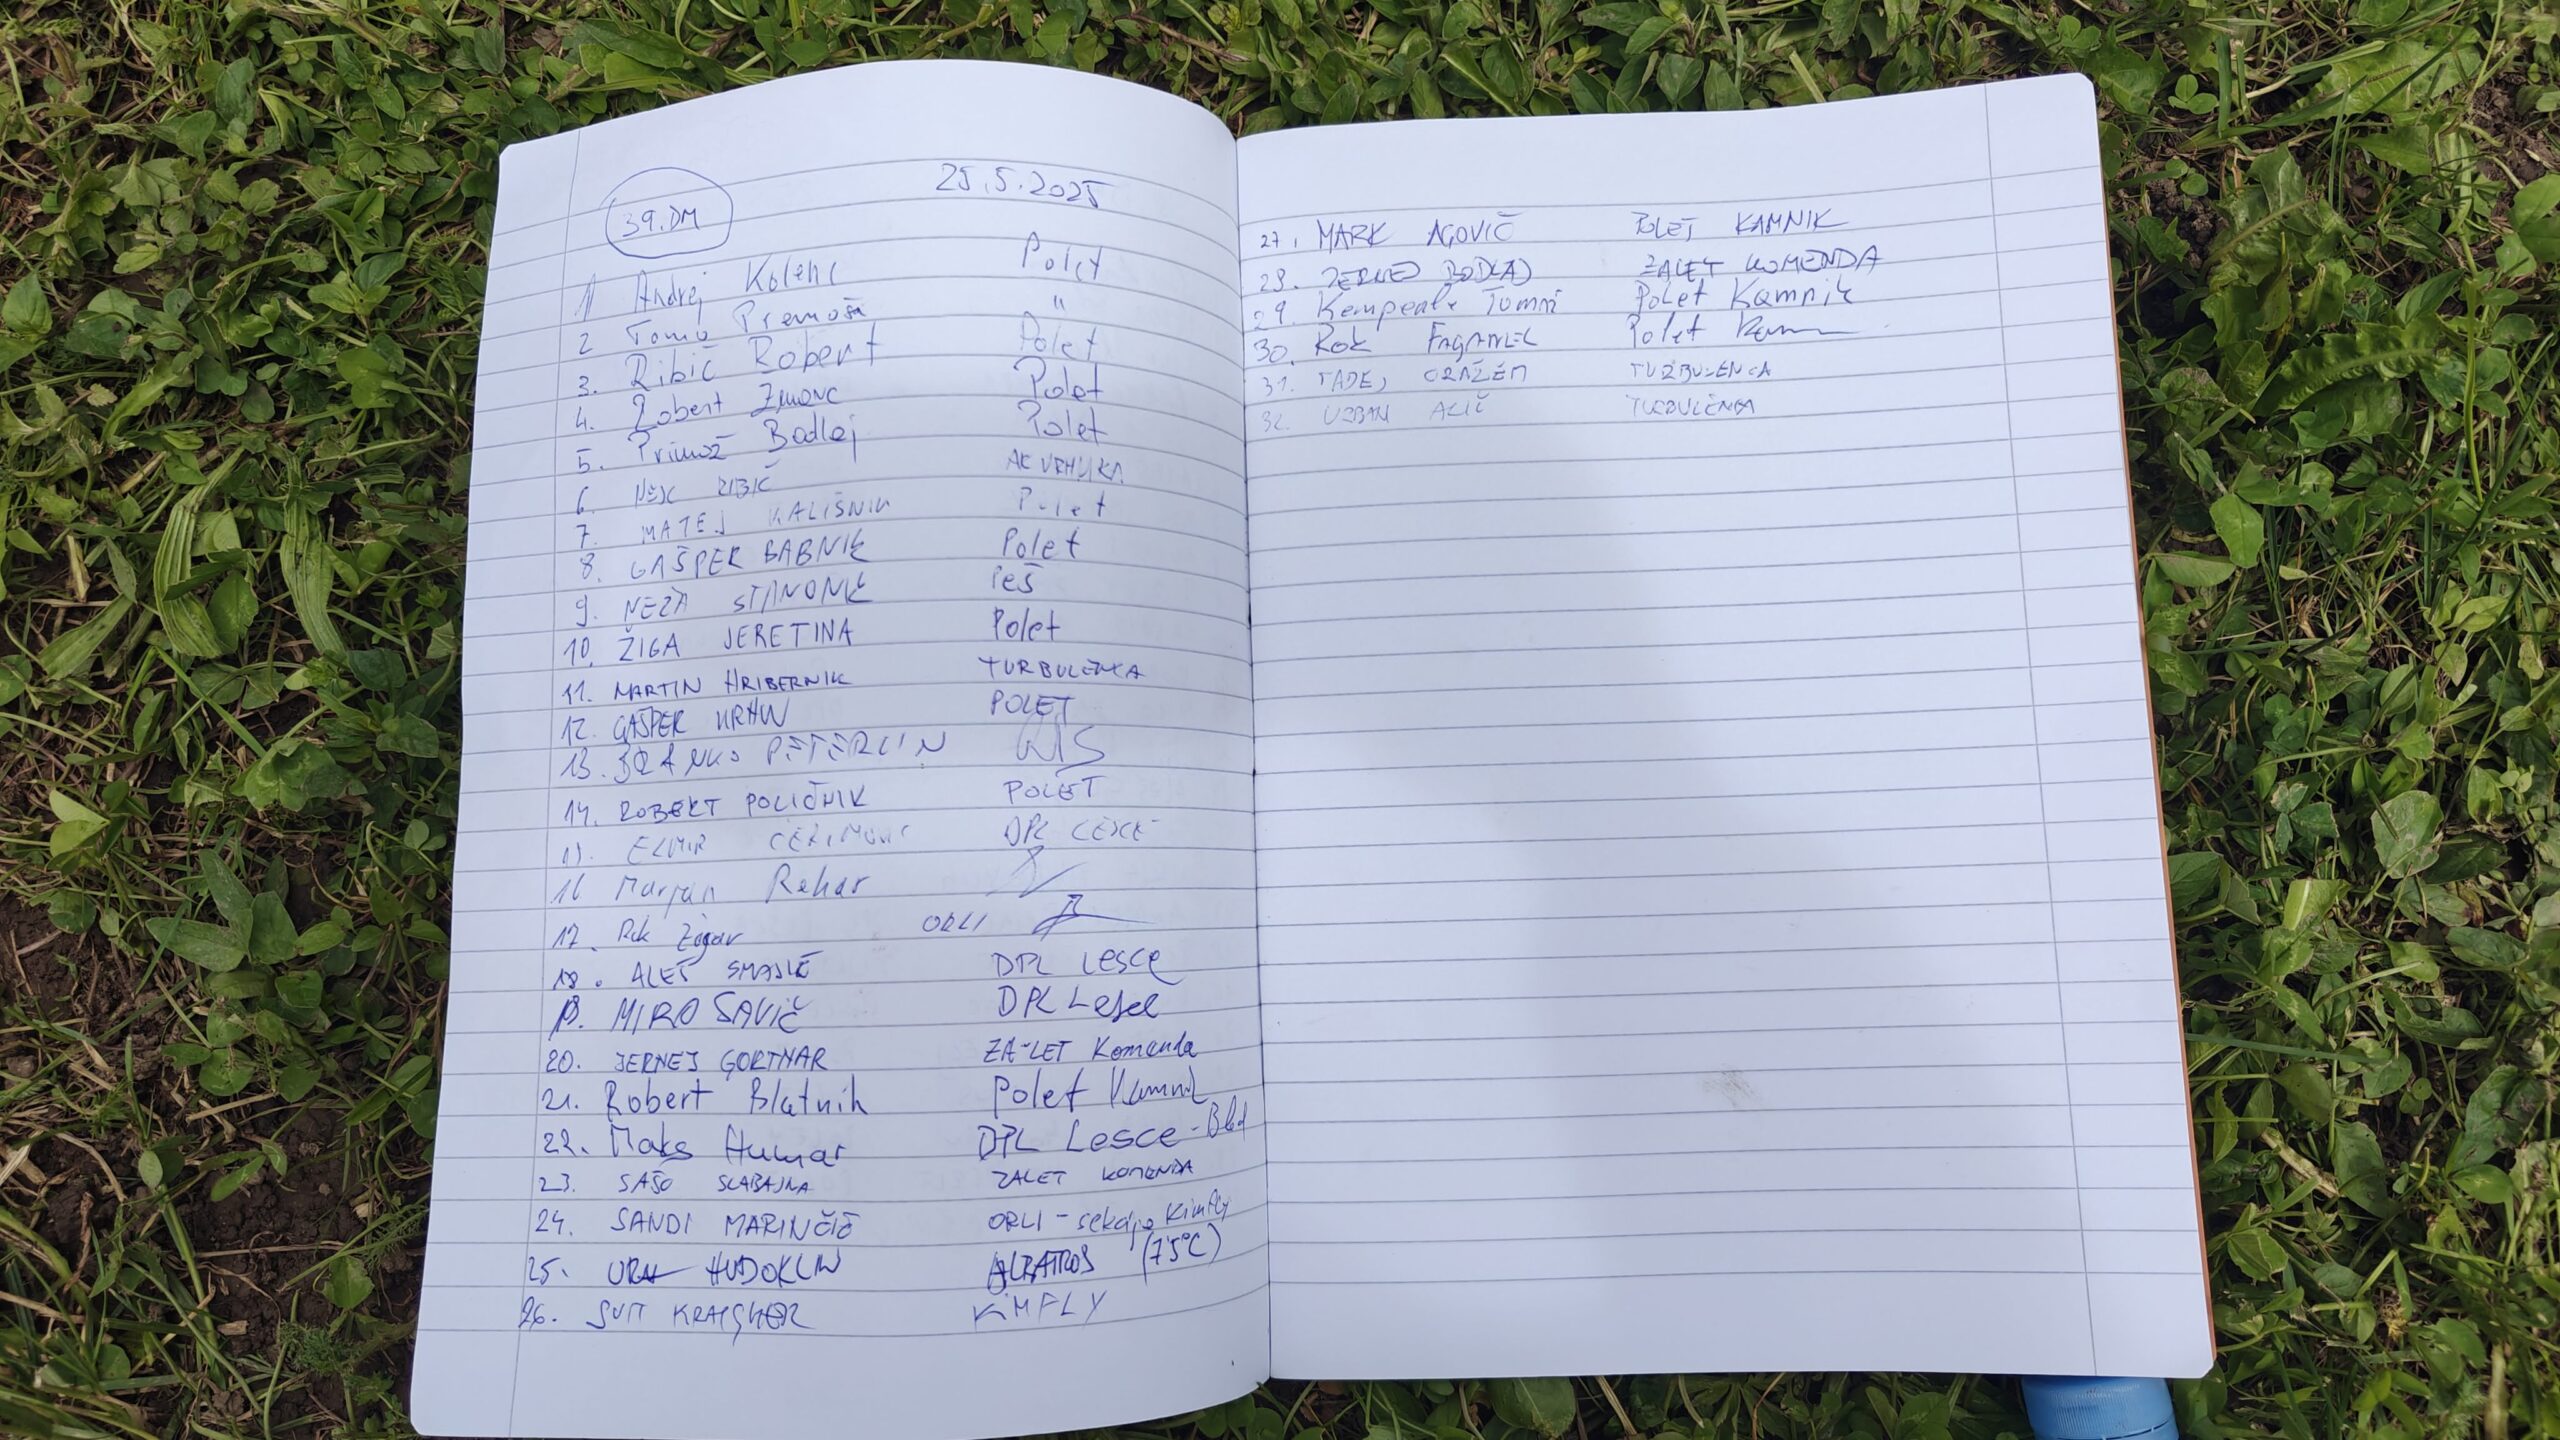 39. DM 25.5.2025
1 Andrej Kolenc Polet
2 Tomo Premoša "
3. Ribič Robert Polet
4. Robert Zmonc Polet
5. Primož Bodlaj Polet
6. RIBIČ AK VRHNIKA
7. MATEJ KALIŠNIK Polet
8. GAŠPER BABNIK Polet
9. NEŽA STANONIK ieš
10. ŽIGA JERETINA Polet
11. MARTIN HRIBERNIK TURBULENCA
12. GAŠPER POLET
13. BRANKO PETERLIN
14. ROBERT POLIČNIK POLET
15. ELMIR DPL LESCE
16 Marjan Rehar
17. Rok Žagar ORLI
18. ALEŠ DPL Lesce
19. MIRO SAVIČ DPL Lesce
20. JERNEJ GORTNAR ZA-LET Komenda
21. Robert Blatnik Polet Kamnik
22. Maks Humar DPL Lesce - Bled
23. SAŠO SLABAJNA ZALET KOMENDA
24. SANDI MARINČIČ ORLI - sekcija Kimfly
25. HUDOKLIN ALBATROS (75°C)
26. SVIT KRAIGHER KIMFLY
27. MARK AGOVIČ POLET KAMNIK
28. JERNEJ BODLAJ ZALET KOMENDA
29. Tomaž Polet Kamnik
30. Rok FAGANEL Polet Kamn
31. TADEJ ORAŽEM TURBULENCA
32. URBAN ALIČ TURBULENCA